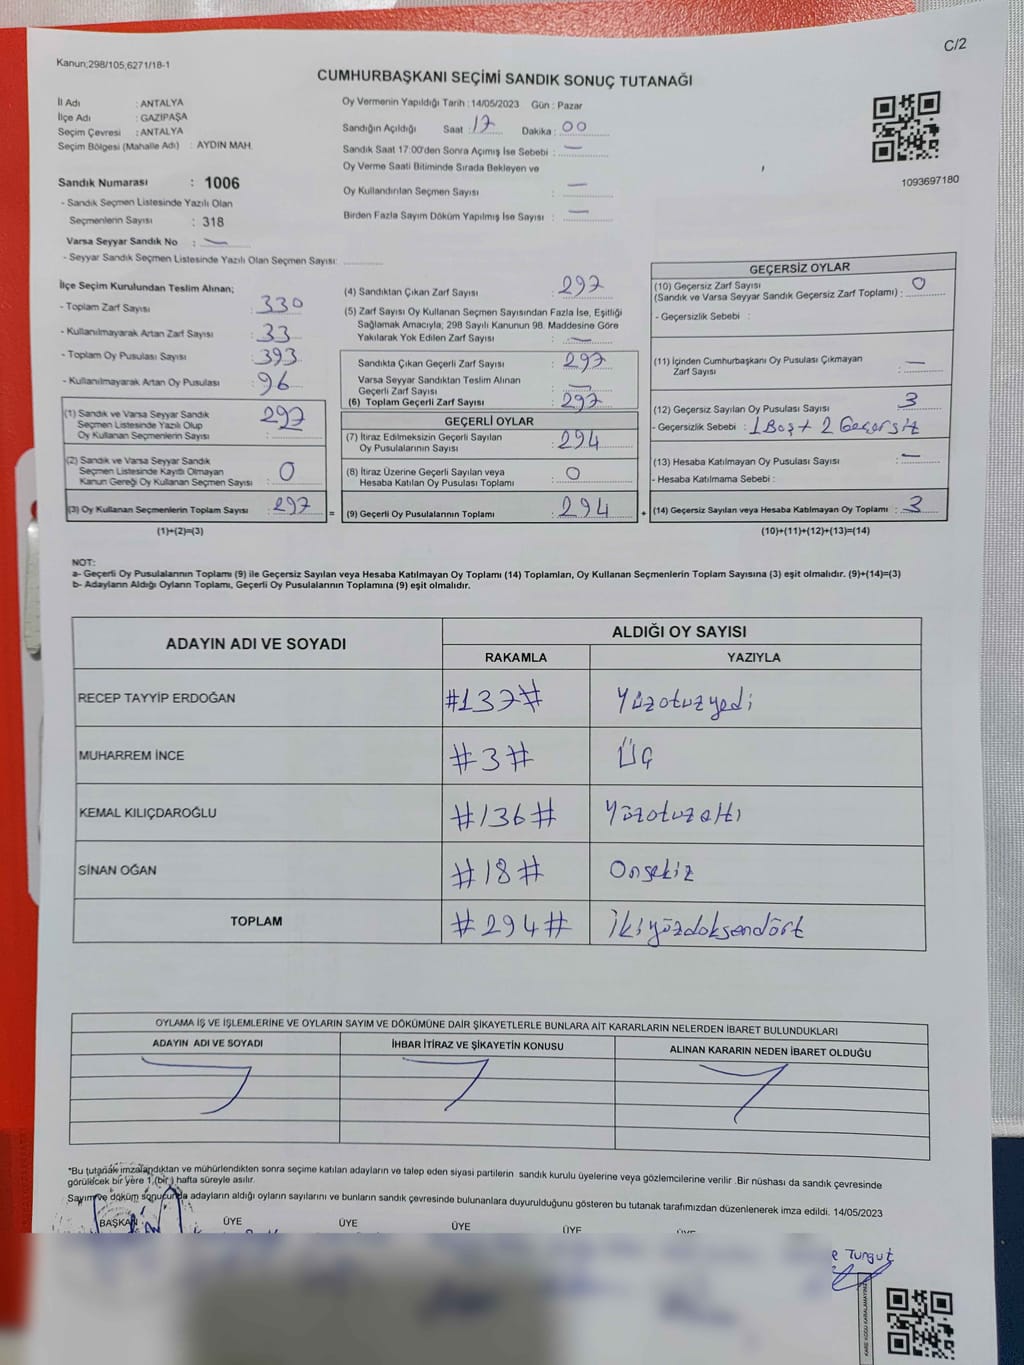 C/2
Kanun;298/105,6271/18-1
CUMHURBAŞKANI SEÇİMİ SANDIK SONUÇ TUTANAĞI
İl Adı : ANTALYA
İlçe Adı : GAZİPAŞA
Seçim Çevresi : ANTALYA
Seçim Bölgesi (Mahalle Adı) : AYDIN MAH.
Sandık Numarası : 1006
- Sandık Seçmen Listesinde Yazılı Olan
Seçmenlerin Sayısı : 318
Varsa Seyyar Sandık No : —
- Seyyar Sandık Seçmen Listesinde Yazılı Olan Seçmen Sayısı:
Oy Vermenin Yapıldığı Tarih : 14/05/2023 Gün : Pazar
Sandığın Açıldığı Saat : 17 Dakika : 00
Sandık Saat 17:00'den Sonra Açımış İse Sebebi : —
Oy Verme Saati Bitiminde Sırada Bekleyen ve
Oy Kullandırılan Seçmen Sayısı : —
Birden Fazla Sayım Döküm Yapılmış İse Sayısı : —
1093697180
İlçe Seçim Kurulundan Teslim Alınan;
- Toplam Zarf Sayısı : 330
- Kullanılmayarak Artan Zarf Sayısı : 33
- Toplam Oy Pusulası Sayısı : 393
- Kullanılmayarak Artan Oy Pusulası : 96
(1) Sandık ve Varsa Seyyar Sandık
Seçmen Listesinde Yazılı Olup
Oy Kullanan Seçmenlerin Sayısı : 297
(2) Sandık ve Varsa Seyyar Sandık
Seçmen Listesinde Kayıtlı Olmayan
Kanun Gereği Oy Kullanan Seçmen Sayısı : 0
(3) Oy Kullanan Seçmenlerin Toplam Sayısı : 297
(1)+(2)=(3)
(4) Sandıktan Çıkan Zarf Sayısı : 297
(5) Zarf Sayısı Oy Kullanan Seçmen Sayısından Fazla İse, Eşitliği
Sağlamak Amacıyla; 298 Sayılı Kanunun 98. Maddesine Göre
Yakılarak Yok Edilen Zarf Sayısı : —
Sandıkta Çıkan Geçerli Zarf Sayısı : 297
Varsa Seyyar Sandıktan Teslim Alınan
Geçerli Zarf Sayısı : —
(6) Toplam Geçerli Zarf Sayısı : 297
GEÇERLİ OYLAR
(7) İtiraz Edilmeksizin Geçerli Sayılan
Oy Pusulalarının Sayısı : 294
(8) İtiraz Üzerine Geçerli Sayılan veya
Hesaba Katılan Oy Pusulası Toplamı : 0
= (9) Geçerli Oy Pusulalarının Toplamı : 294
GEÇERSİZ OYLAR
(10) Geçersiz Zarf Sayısı
(Sandık ve Varsa Seyyar Sandık Geçersiz Zarf Toplamı) : 0
- Geçersizlik Sebebi :
(11) İçinden Cumhurbaşkanı Oy Pusulası Çıkmayan
Zarf Sayısı : —
(12) Geçersiz Sayılan Oy Pusulası Sayısı : 3
- Geçersizlik Sebebi : 1 Boş + 2 Geçersiz
(13) Hesaba Katılmayan Oy Pusulası Sayısı : —
- Hesaba Katılmama Sebebi :
+ (14) Geçersiz Sayılan veya Hesaba Katılmayan Oy Toplamı : 3
(10)+(11)+(12)+(13)=(14)
NOT:
a- Geçerli Oy Pusulalarının Toplamı (9) ile Geçersiz Sayılan veya Hesaba Katılmayan Oy Toplamı (14) Toplamları, Oy Kullanan Seçmenlerin Toplam Sayısına (3) eşit olmalıdır. (9)+(14)=(3)
b- Adayların Aldığı Oyların Toplamı, Geçerli Oy Pusulalarının Toplamına (9) eşit olmalıdır.
ADAYIN ADI VE SOYADI ALDIĞI OY SAYISI
RAKAMLA YAZIYLA
RECEP TAYYİP ERDOĞAN #137# Yüzotuzyedi
MUHARREM İNCE #3# Üç
KEMAL KILIÇDAROĞLU #136# Yüzotuzaltı
SİNAN OĞAN #18# Onsekiz
TOPLAM #294# İkiyüzdoksendört
OYLAMA İŞ VE İŞLEMLERİNE VE OYLARIN SAYIM VE DÖKÜMÜNE DAİR ŞİKAYETLERLE BUNLARA AİT KARARLARIN NELERDEN İBARET BULUNDUKLARI
ADAYIN ADI VE SOYADI İHBAR İTİRAZ VE ŞİKAYETİN KONUSU ALINAN KARARIN NEDEN İBARET OLDUĞU
*Bu tutanak imzalandıktan ve mühürlendikten sonra seçime katılan adayların ve talep eden siyasi partilerin sandık kurulu üyelerine veya gözlemcilerine verilir .Bir nüshası da sandık çevresinde
görülecek bir yere 1 (bir) hafta süreyle asılır.
Sayım ve döküm sonucunda adayların aldığı oyların sayılarını ve bunların sandık çevresinde bulunanlara duyurulduğunu gösteren bu tutanak tarafımızdan düzenlenerek imza edildi. 14/05/2023
BAŞKAN ÜYE ÜYE ÜYE ÜYE ÜYE
Turgut